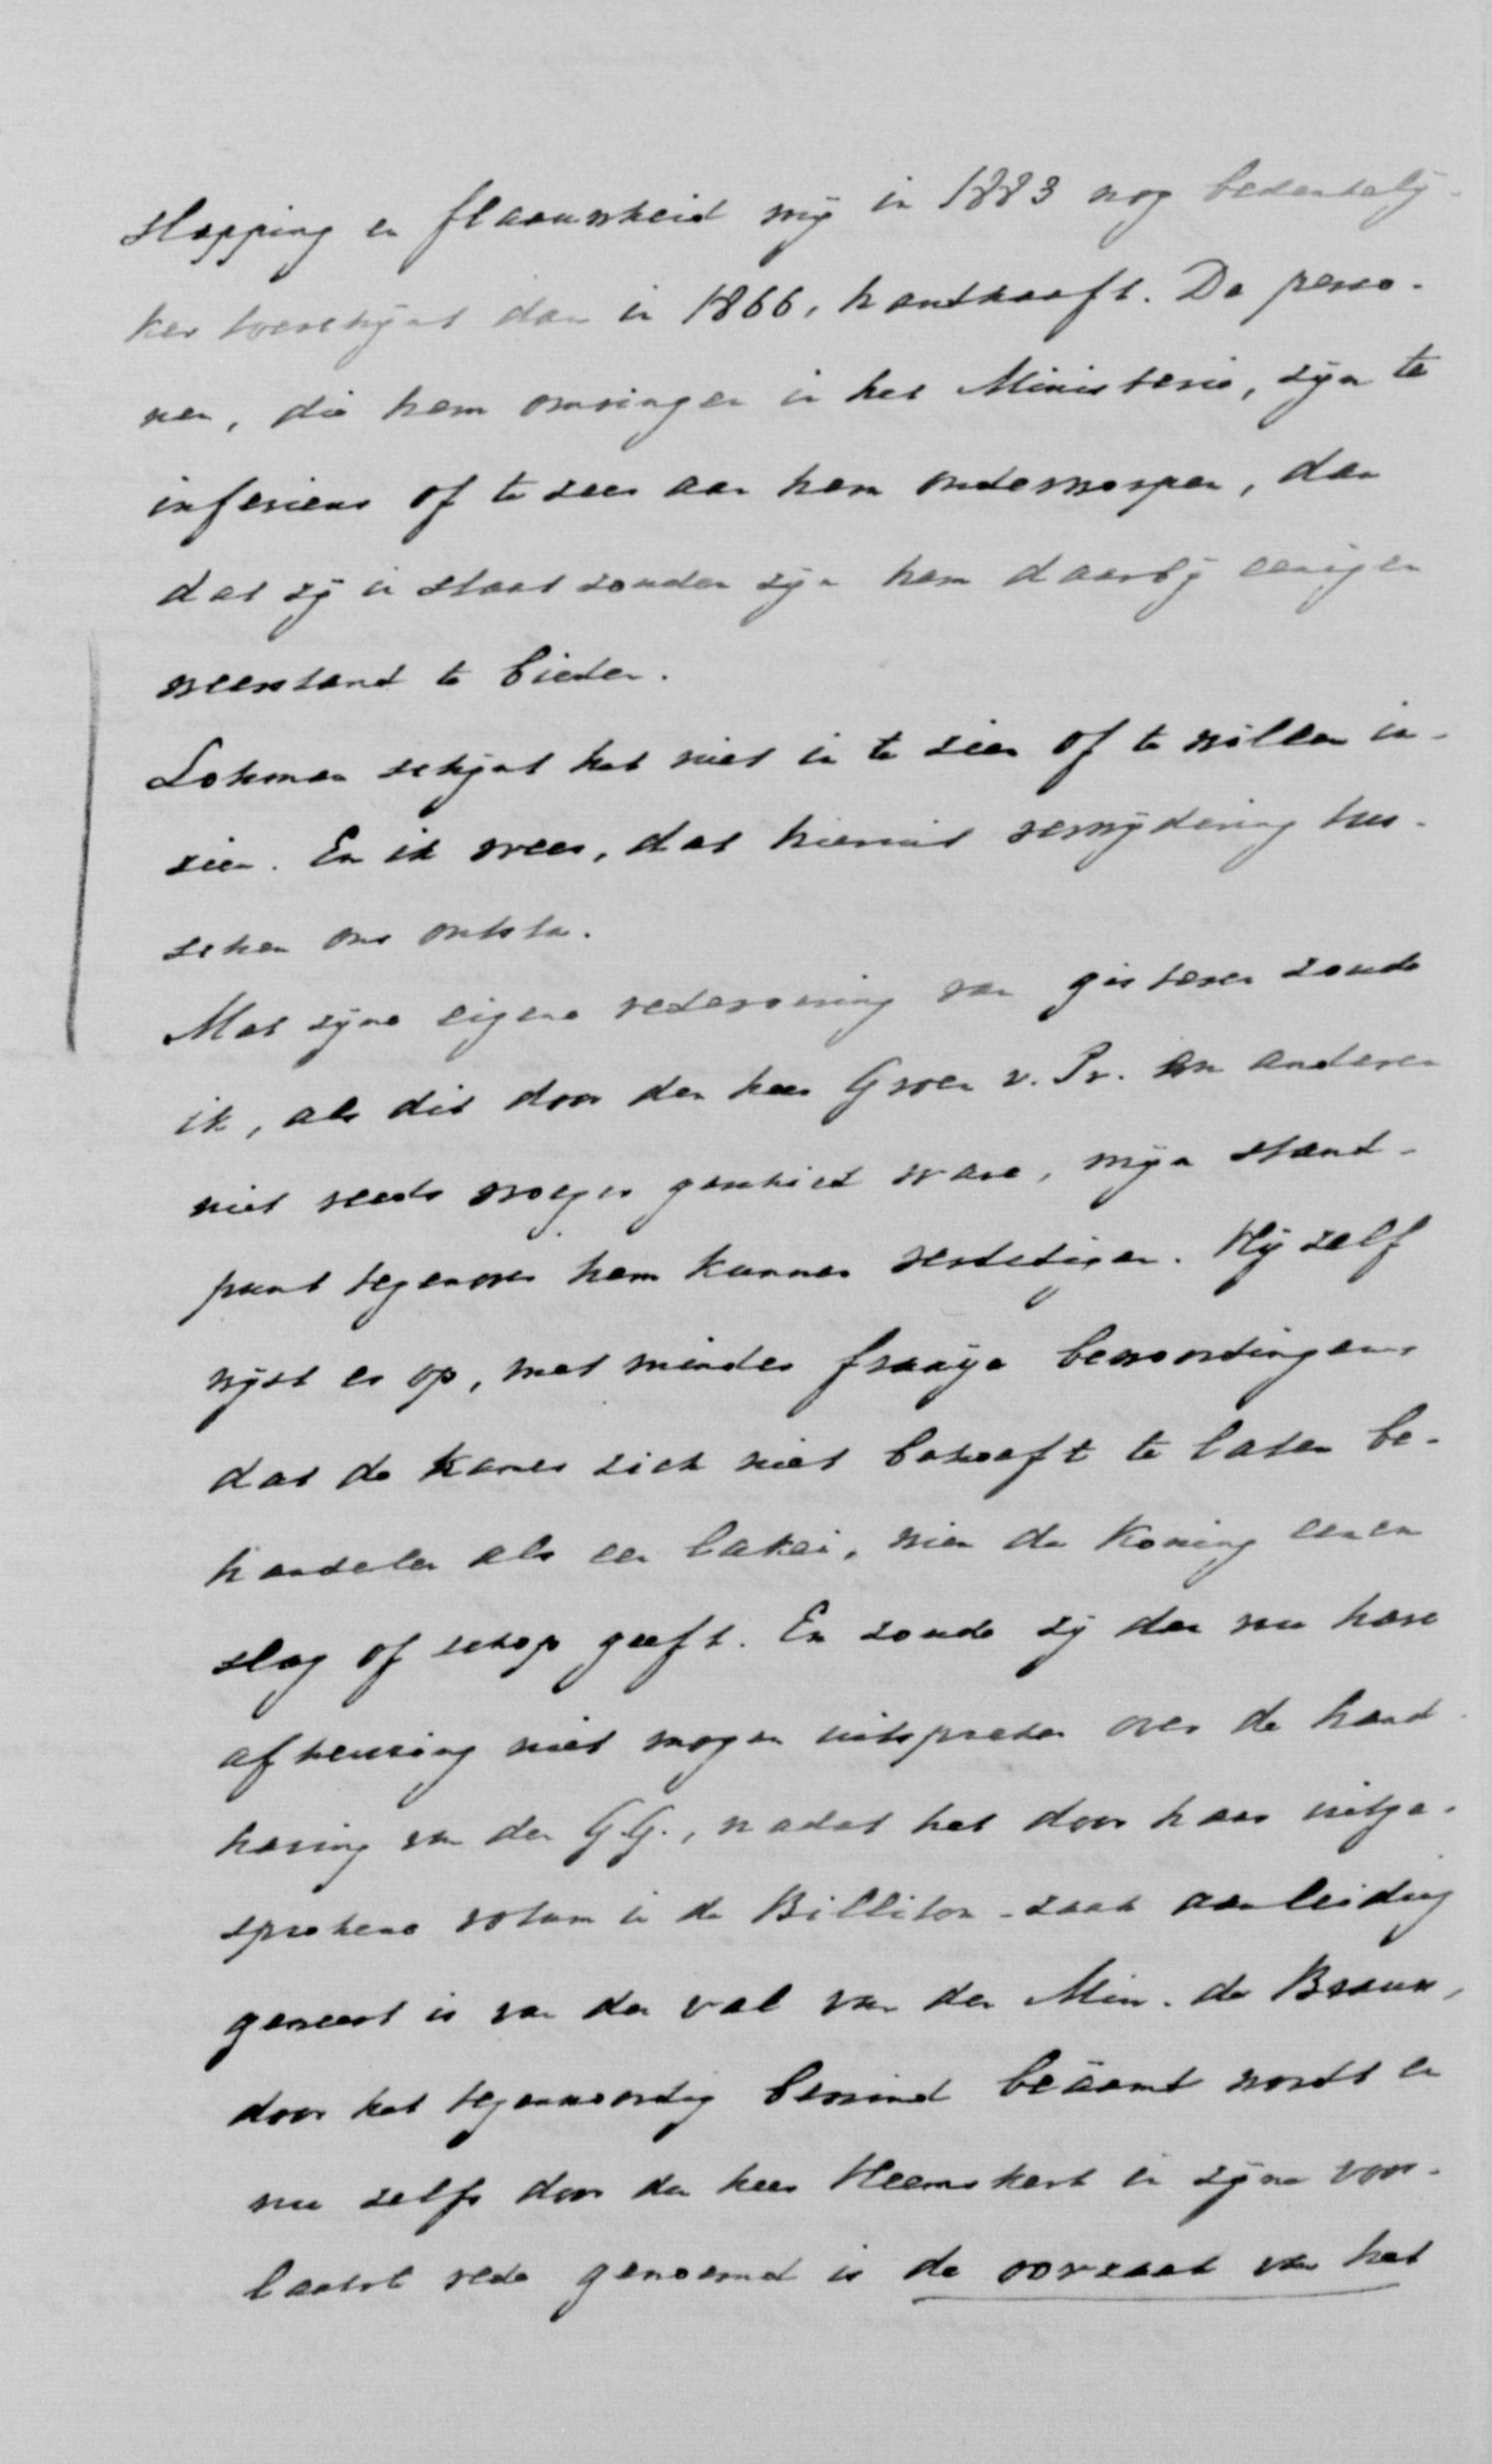 slapping en flaauwheid mij in 1883 nog bedenkelij-
ker toeschijnt dan in 1866, handhaaft. De perso-
nen, die hem omringen in het Ministerie, zijn te
inferieur of te zeer aan hem onderworpen, dan
dat zij in staat zouden zijn hem daarbij eenigen
weerstand te bieden.
Lohman schijnt het niet in te zien of te willen in-
zien. En ik vrees, dat hieruit verwijdering tus-
schen ons ontsta.
Met zijne eigene redevoering van gisteren zoude
ik, als dit door den heer Groen v. Pr. en anderen
niet reeds vroeger geschied ware, mijn stand-
punt tegenover hem kunnen verdedigen. Hij zelf
wijst er op, met minder fraaije bewoordingen,
dat de Kamer zich niet behoeft te laten be-
handelen als een lakei, wien de Koning eenen
slag of schop geeft. En zoude zij dan nu hare
afkeuring niet mogen uitspreken over de hand-
having van den G.G., nadat het door haar uitge-
sproken votum in de Billiton-zaak aanleiding
geweest is van den val van den Min. de Brauw,
door het tegenwoordig bewind beäamd wordt en
nu zelfs door den heer Heemskerk in zijne voor-
laatste rede genoemd is de oorzaak van het